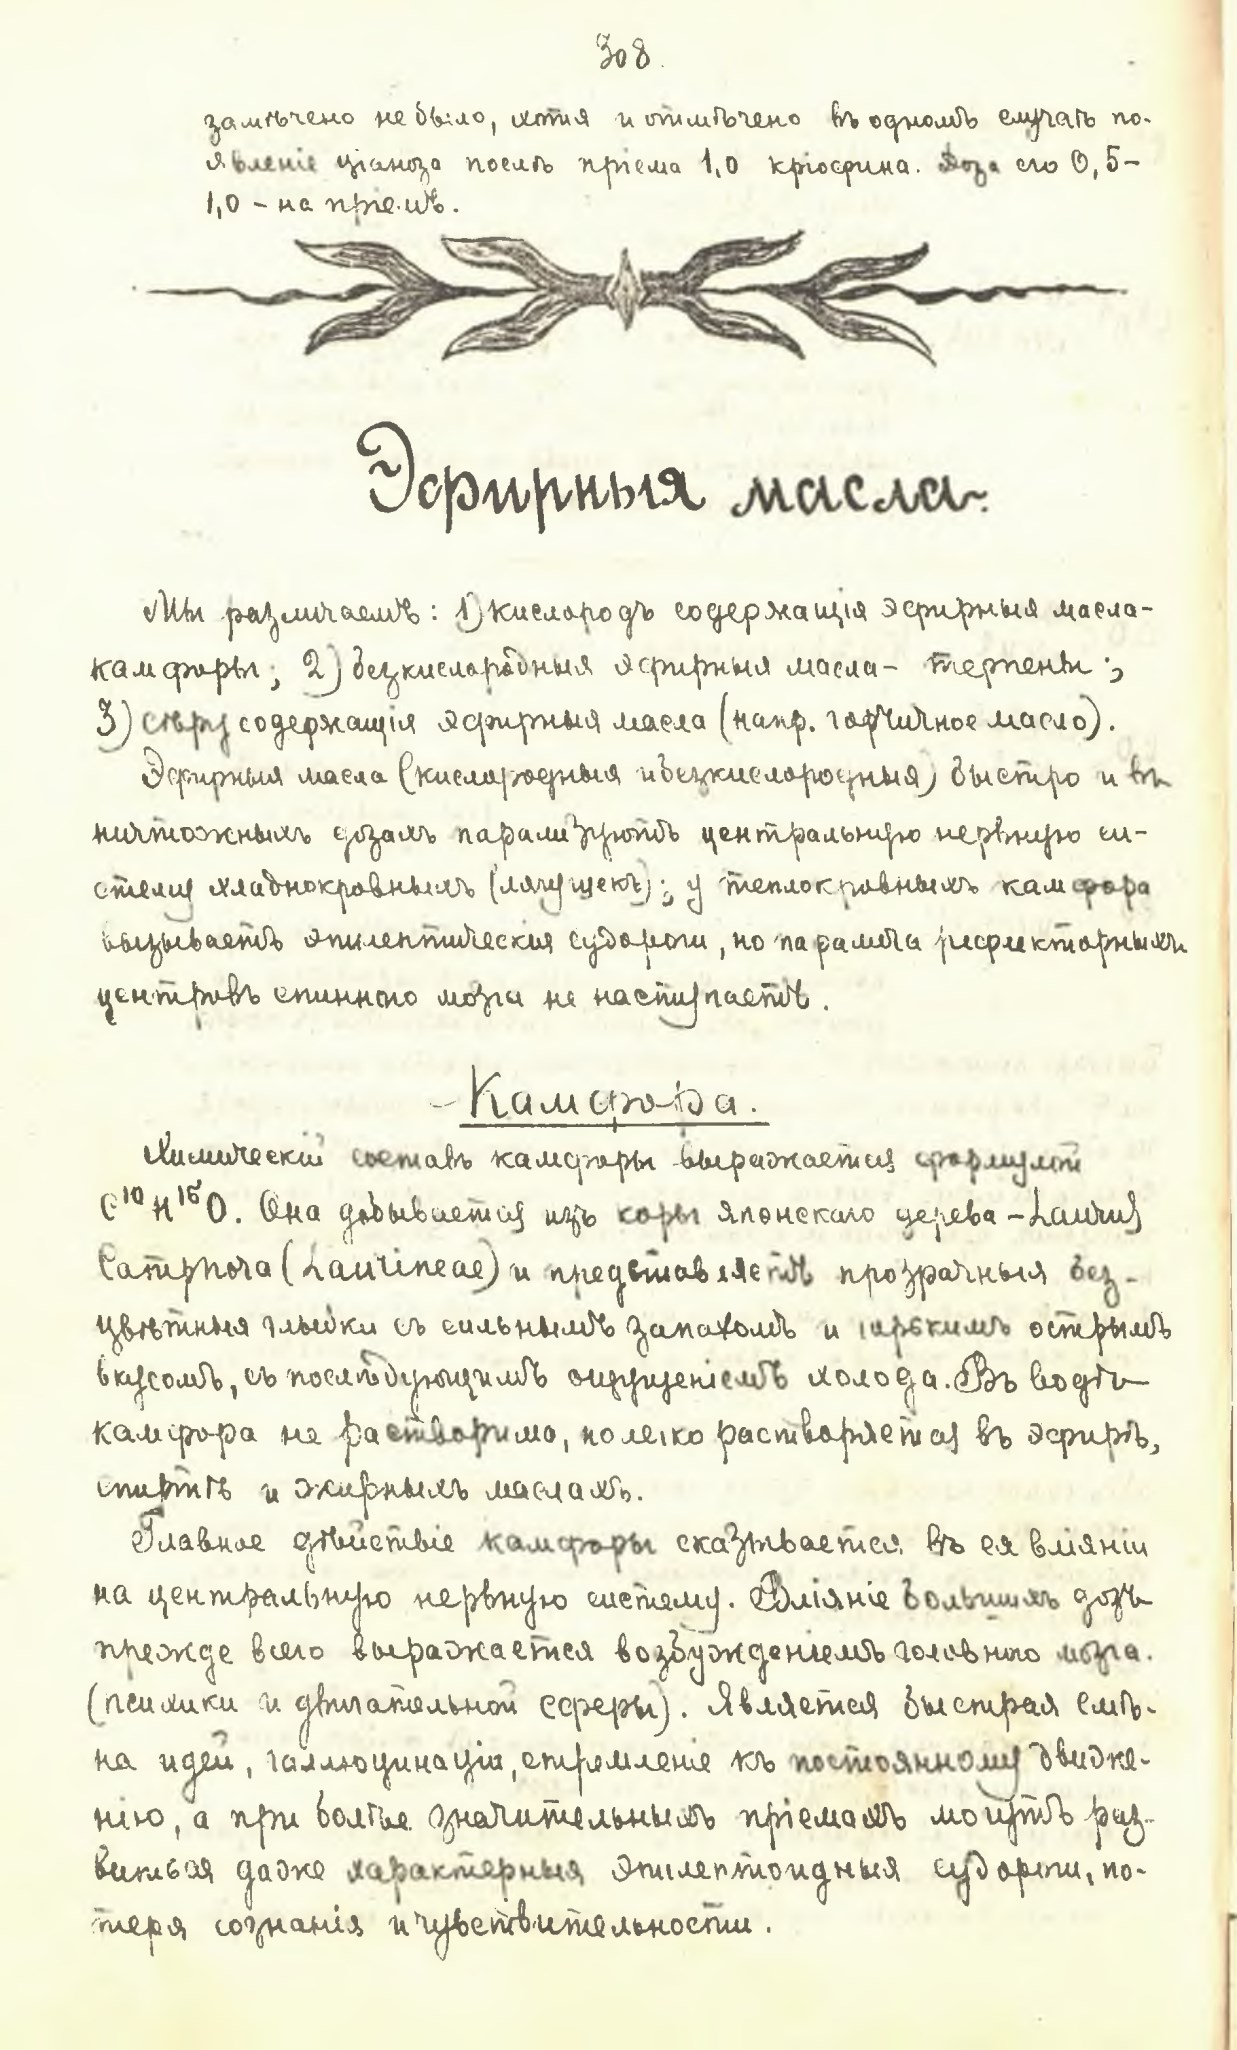 308.
замѣчено не было, хотя и отмѣчено въ одномъ случаѣ по-
явленіе ціаноза послѣ пріема 1,0 кріофина. Доза его 0,5-
1,0 - на пріемъ.
Эфирныя масла.
Мы различаемъ: 1) кислородъ содержащія эфирныя масла-
камфоры; 2) безкислородныя эфирныя масла - терпены;
3) сѣру содержащія эфирныя масла (напр. горчичное масло).
Эфирныя масла (кислородныя и безкислородныя) быстро и въ
ничтожныхъ дозахъ парализуютъ центральную нервную си-
стему хладнокровныхъ (лягушекъ); у теплокровныхъ камфора
вызываетъ эпилептическія судороги, но паралича рефлекторныхъ
центровъ спинного мозга не наступаетъ.
Камфора.
Химическій составъ камфоры выражается формулой
C¹⁰H¹⁶O. Она добывается изъ коры японскаго дерева - Laurus
Camphora (Laurineae) и представляетъ прозрачныя без-
цвѣтныя глыбки съ сильнымъ запахомъ и горькимъ острымъ
вкусомъ, съ послѣдующимъ ощущеніемъ холода. Въ водѣ
камфора не растворима, но легко растворяется въ эфирѣ,
спиртѣ и жирныхъ маслахъ.
Главное дѣйствіе камфоры сказывается въ ея вліяніи
на центральную нервную систему. Вліяніе большихъ дозъ
прежде всего выражается возбужденіемъ головного мозга.
(психики и двигательной сферы). Является быстрая смѣ-
на идей, галлюцинаціи, стремленіе къ постоянному движе-
нію, а при болѣе значительныхъ пріемахъ могутъ раз-
виться даже характерныя эпилептоидныя судороги, по-
теря сознанія и чувствительности.